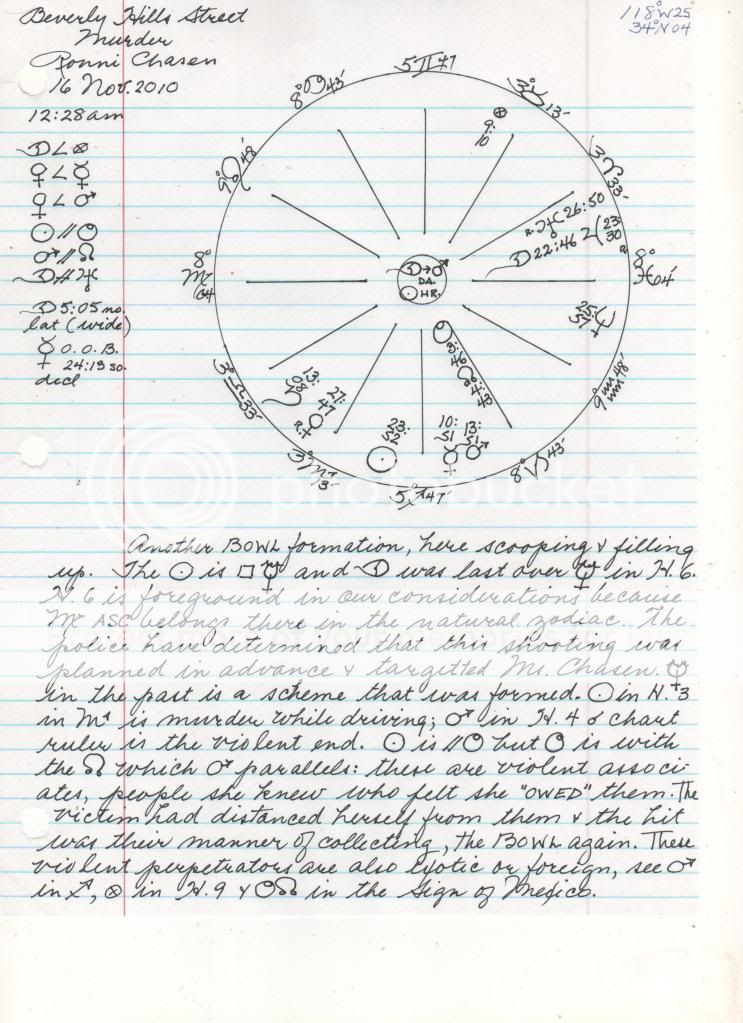 Beverly Hills Street
Murder
Ronni Chasen
16 Nov. 2010
12:28am
118°W25
34°N04
☽∠⊗
♀∠☿
♀∠♂
♂∥☊
☽5:05 no.
lat (wide)
☿ O.O.B.
24:13 so.
decl
5♊47
3°♉13'
3°♈33'
8°♓04'
9°♒48'
8°♑43'
5♐47'
3°♏13'
3°♎33'
8°♍04
9°♌48'
8°♋43'
⊗ 9:10
R. ♅ 26:50
☽ 22:46 ♃ 23:30 R
25:57
3:46
☊ 4:43
☽→♂
DA.
☉ HR.
13:
27:47
R. ♀
23:52
☉
10:51 13:51
☿ ♂
photobucket
Another BOWL formation, here scooping & filling
up. The ☉ is □ ♆ and ☽ was last over ♆ in H. 6.
H. 6 is foreground in our considerations because
♍ ASC belongs there in the natural zodiac. The
police have determined that this shooting was
planned in advance & targetted Ms. Chasen. ♆
in the past is a scheme that was formed. ☉ in H. 3
in ♏ is murder while driving; ♂ in H. 4 ☌ chart
ruler is the violent end. ☉ is ∥ but is with
the ☊ which ♂ parallels: these are violent associ-
ates, people she knew who felt she "OWED" them. The
victim had distanced herself from them & the hit
was their manner of collecting, the BOWL again. These
violent perpetrators are also exotic or foreign, see ♂
in ♐, ⊗ in H. 9 & ☊ in the sign of Mexico.